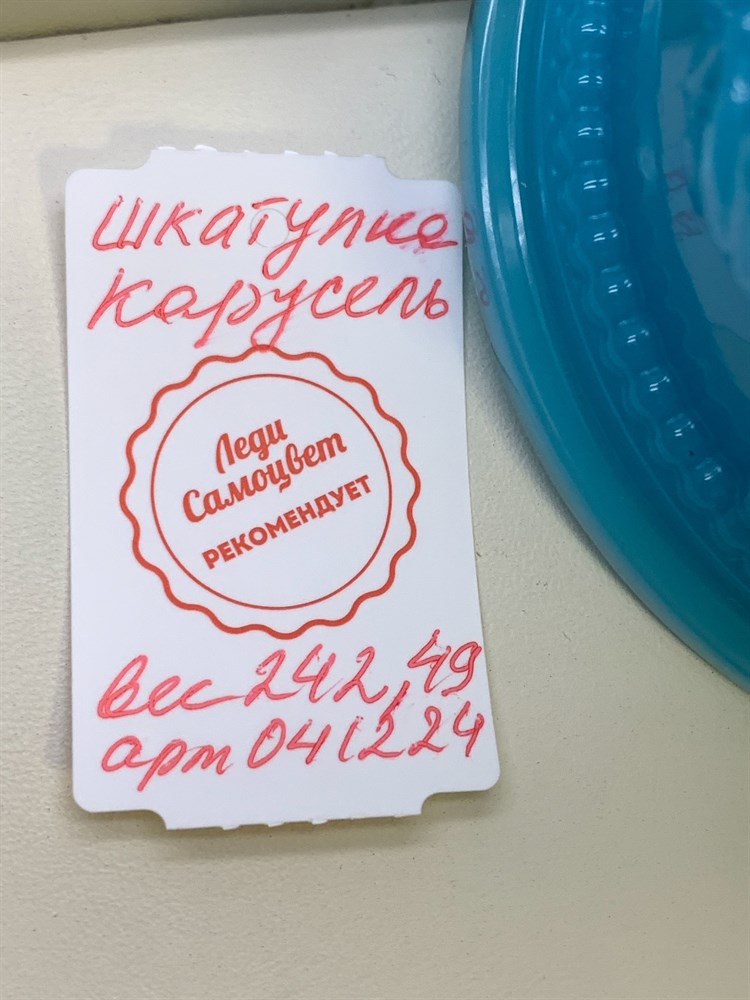 шкатулка
карусель
Леди
Самоцвет
РЕКОМЕНДУЕТ
вес 242,49
арт 041224